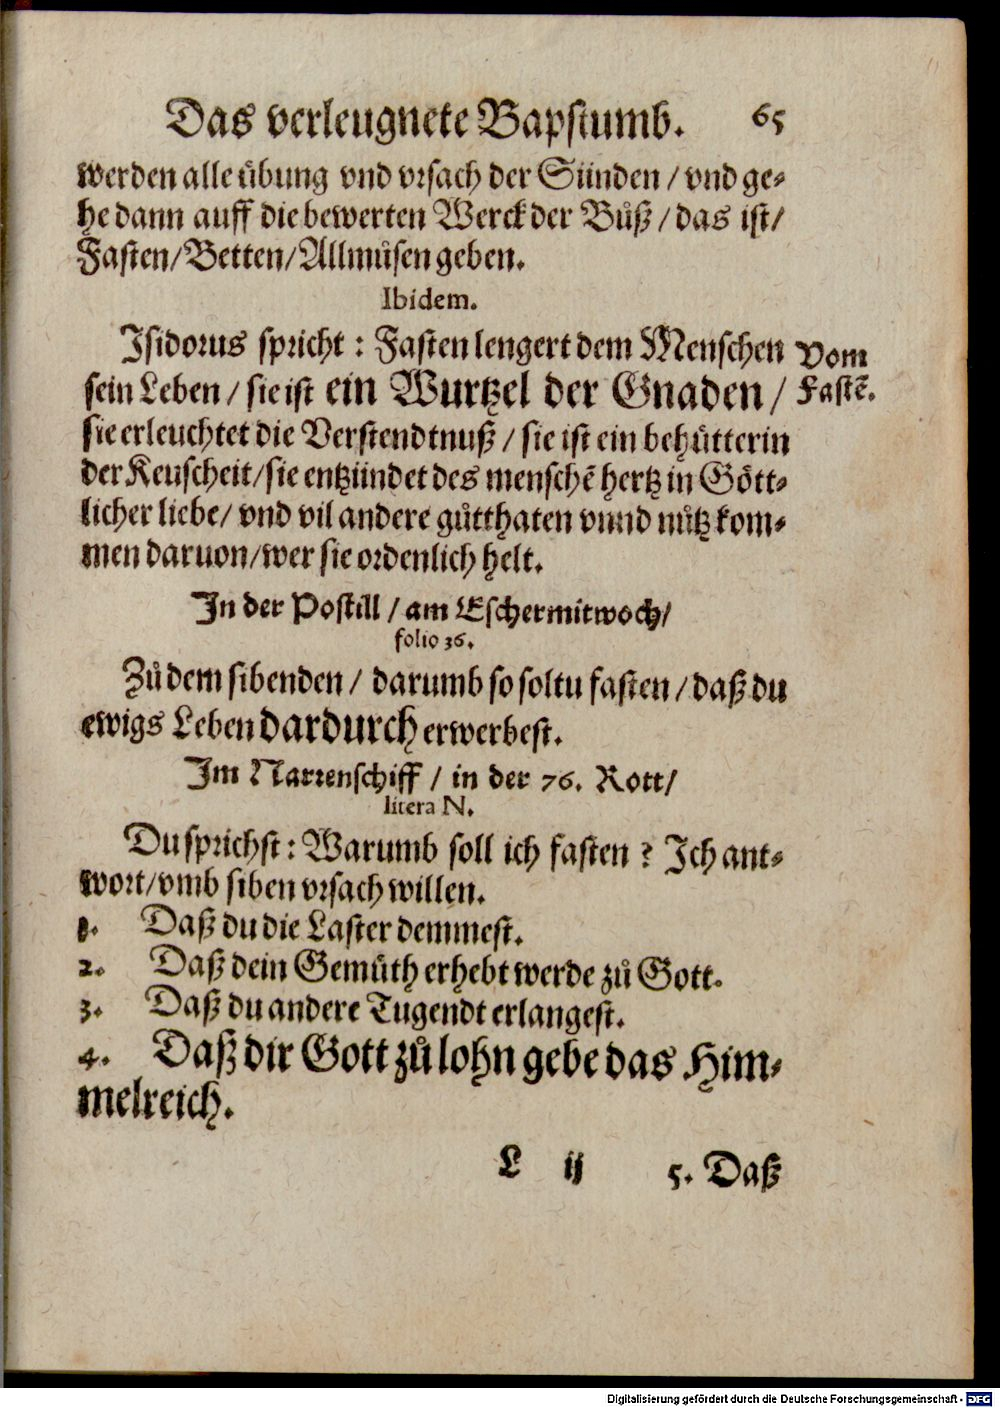 Das verleugnete Bapstumb. 65
werden alle übung vnd vrsach der Sünden / vnd ge-
he dann auff die bewerten Werck der Bůß / das ist /
Fasten / Betten / Allmůsen geben.
Ibidem.
Isidorus spricht : Fasten lengert dem Menschen
Vom
Fastẽ.
sein Leben / sie ist ein Wurtzel der Gnaden /
sie erleuchtet die Verstendtnuß / sie ist ein behütterin
der Keuscheit / sie entzündet des menschẽ hertz in Gött-
licher liebe / vnd vil andere gůtthaten vnnd nůtz kom-
men daruon / wer sie ordenlich helt.
In der Postill / am Eschermitwoch /
folio 36.
Zů dem sibenden / darumb so soltu fasten / daß du
ewigs Leben dardurch erwerbest.
Im Narrenschiff / in der 76. Rott /
litera N.
Du sprichst : Warumb soll ich fasten ? Ich ant-
wort / vmb siben vrsach willen.
1. Daß du die Laster demmest.
2. Daß dein Gemüth erhebt werde zů Gott.
3. Daß du andere Tugendt erlangest.
4. Daß dir Gott zů lohn gebe das Him-
melreich.
L ij 5. Daß
Digitalisierung gefördert durch die Deutsche Forschungsgemeinschaft - DFG